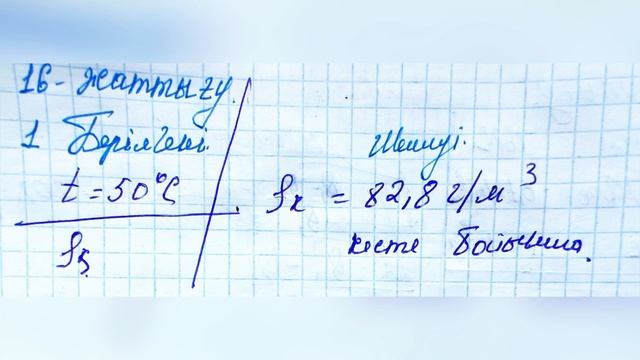 16- жаттығу.
1 Берілгені:
t = 50°C
ρқ
Шешуі:
ρқ = 82,8 г/м³
кесте бойынша.